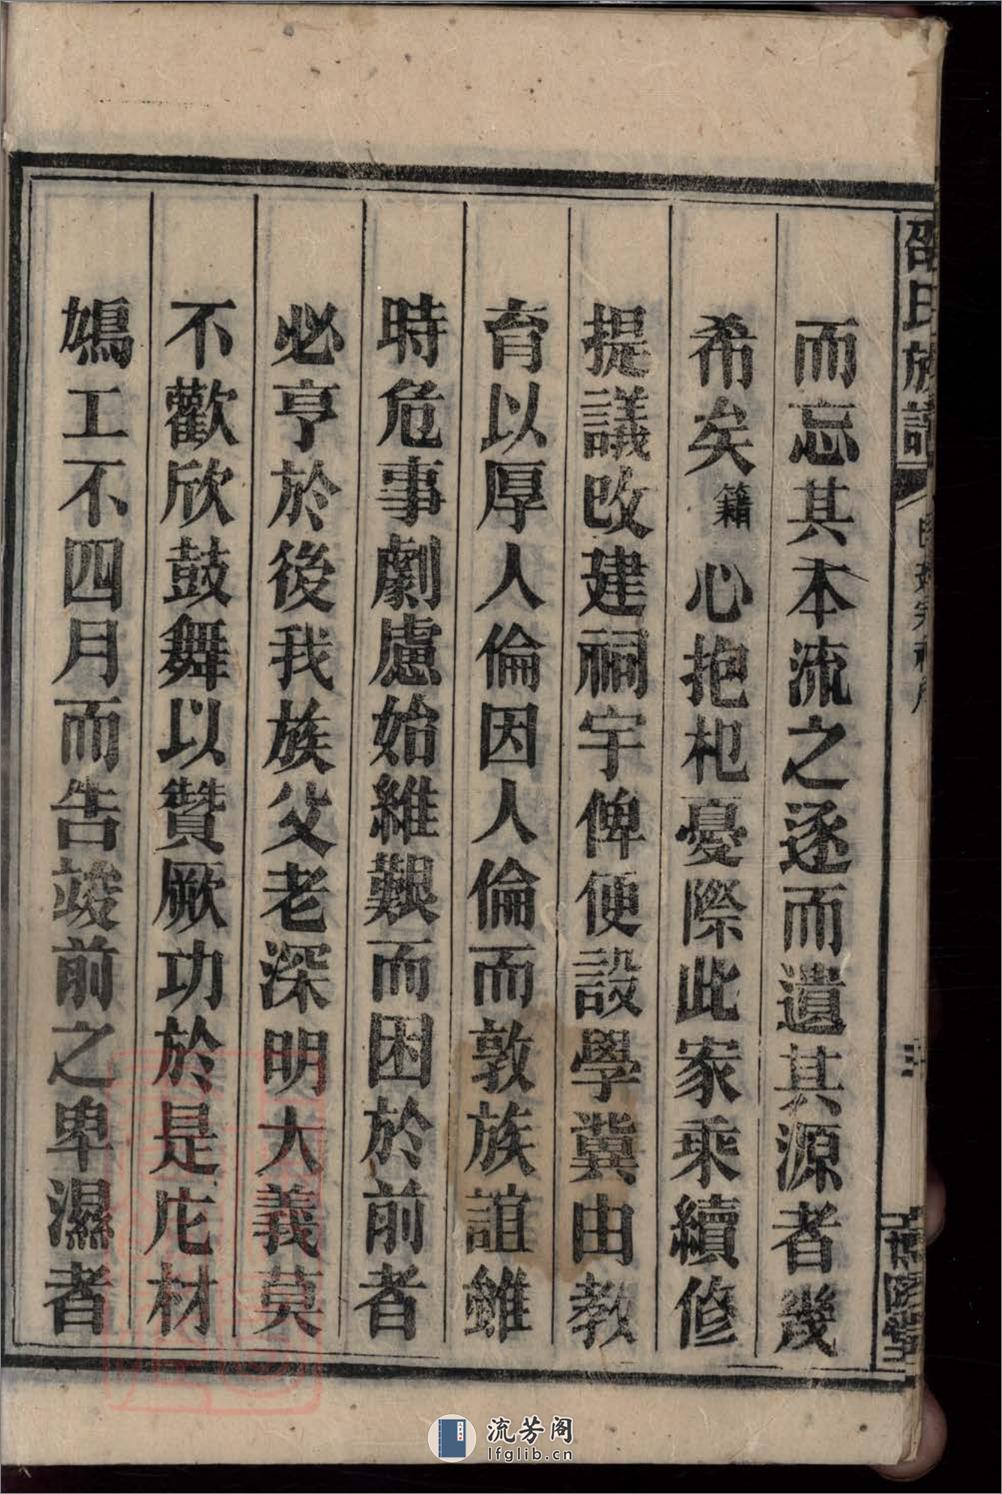 邵氏族譜
而忘其本流之逐而遺其源者幾
希矣籍心抱杞憂際此家乘續修
提議改建祠宇俾便設學冀由教
育以厚人倫因人倫而敦族誼雖
時危事劇慮始維艱而困於前者
必亨於後我族父老深明大義莫
不歡欣鼓舞以贊厥功於是庀材
鳩工不四月而告竣前之卑濕者
流芳阁
lfglib.cn